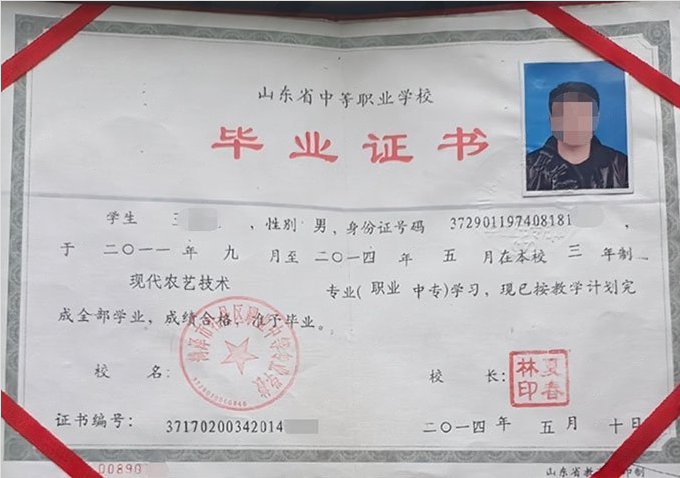 山东省中等职业学校
毕业证书
学生 王 ,性别 男,身份证号码 372901197408181 ,
于 二〇一一 年 九 月至 二〇一四 年 五 月在本校 三 年制
现代农艺技术 专业(职业 中专)学习,现已按教学计划完
成全部学业,成绩合格,准予毕业。
校 名: 校 长: 夏春林印
证书编号: 37170200342014 二〇一四 年 五 月 十 日
00890
山东省教 印制